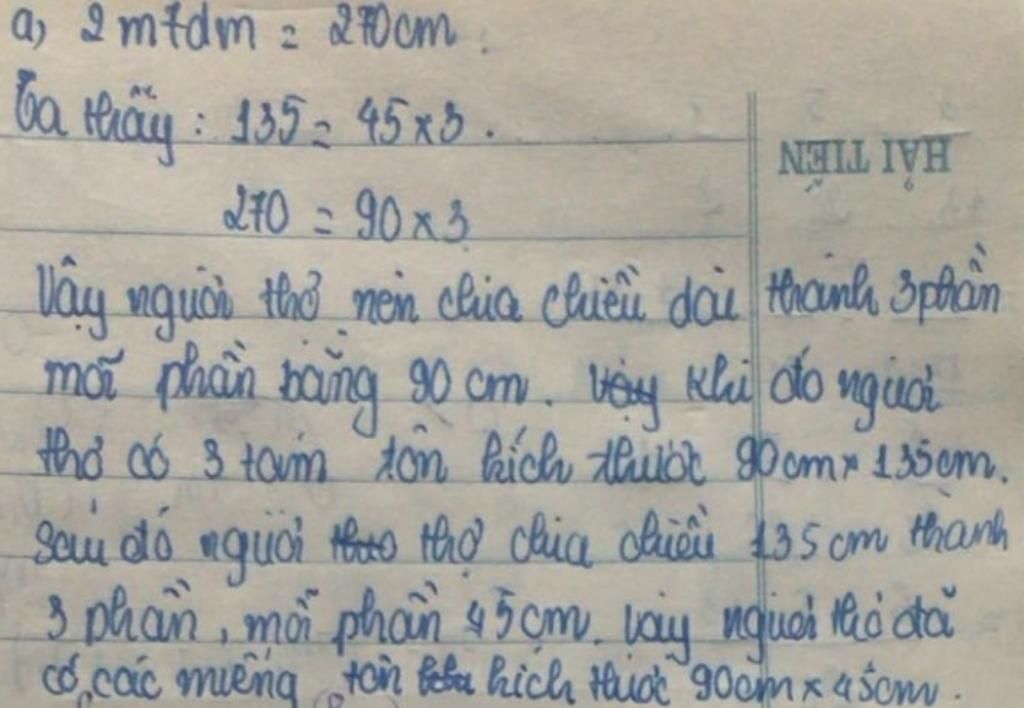 a) 2m7dm = 270cm.
Ta thấy: 135 = 45 x 3.
HẢI TIẾN
270 = 90 x 3
Vậy người thợ nên chia chiều dài thành 3 phần
mỗi phần bằng 90 cm. Vậy Khi đó người
thợ có 3 tấm tôn kích thước 90cm x 135cm.
Sau đó người thợ chia chiều 135cm thành
3 phần, mỗi phần 45cm. Vậy người thợ đã
có các miếng tôn kích thước 90cm x 45cm.